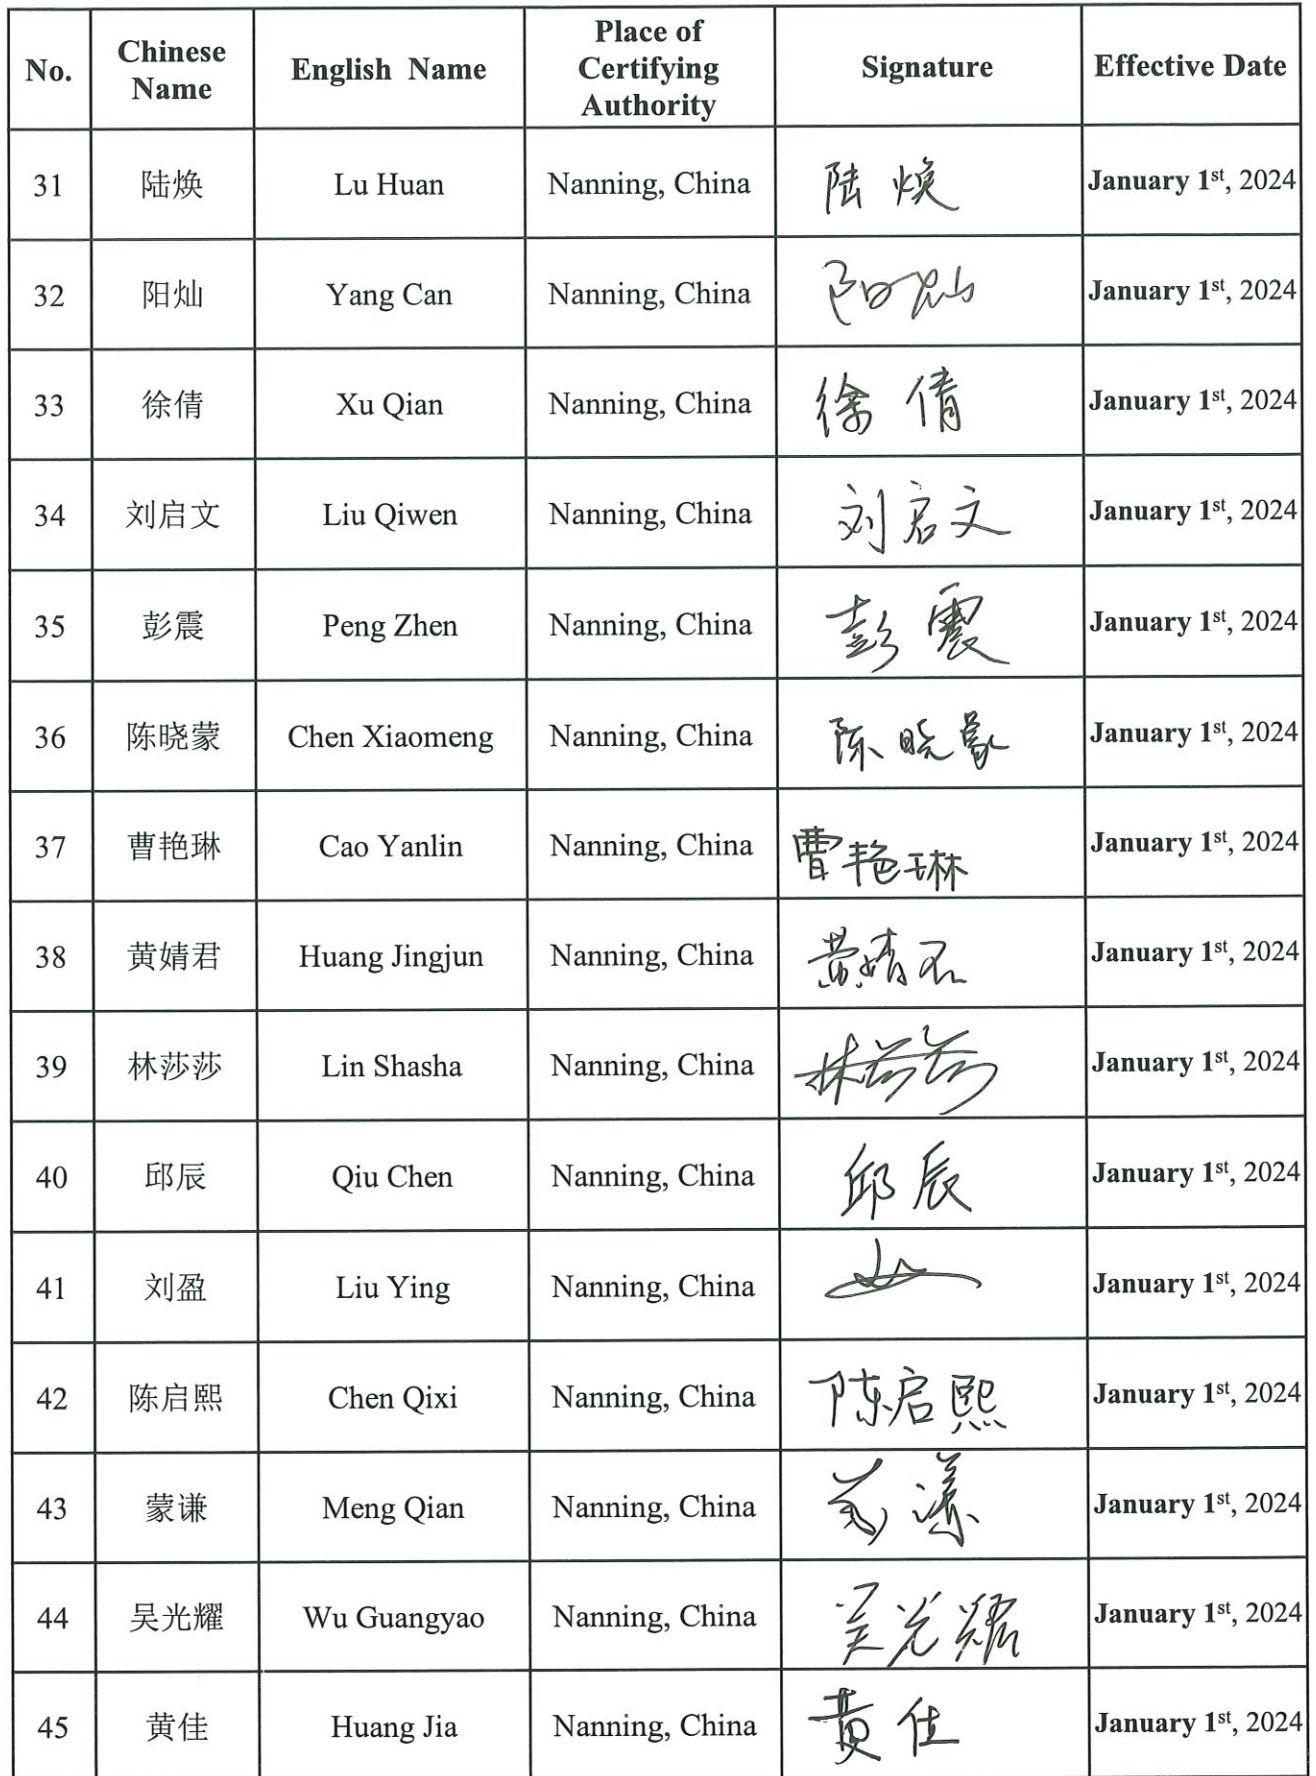 No. Chinese Name English Name Place of Certifying Authority Signature Effective Date
31 陆焕 Lu Huan Nanning, China 陆焕 January 1st, 2024
32 阳灿 Yang Can Nanning, China 阳灿 January 1st, 2024
33 徐倩 Xu Qian Nanning, China 徐倩 January 1st, 2024
34 刘启文 Liu Qiwen Nanning, China 刘启文 January 1st, 2024
35 彭震 Peng Zhen Nanning, China 彭震 January 1st, 2024
36 陈晓蒙 Chen Xiaomeng Nanning, China 陈晓蒙 January 1st, 2024
37 曹艳琳 Cao Yanlin Nanning, China 曹艳琳 January 1st, 2024
38 黄婧君 Huang Jingjun Nanning, China 黄婧君 January 1st, 2024
39 林莎莎 Lin Shasha Nanning, China 林莎莎 January 1st, 2024
40 邱辰 Qiu Chen Nanning, China 邱辰 January 1st, 2024
41 刘盈 Liu Ying Nanning, China January 1st, 2024
42 陈启熙 Chen Qixi Nanning, China 陈启熙 January 1st, 2024
43 蒙谦 Meng Qian Nanning, China 蒙谦 January 1st, 2024
44 吴光耀 Wu Guangyao Nanning, China 吴光耀 January 1st, 2024
45 黄佳 Huang Jia Nanning, China 黄佳 January 1st, 2024